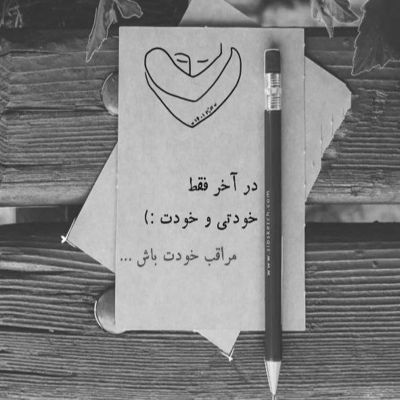 در آخر فقط
خودتی و خودت :)
مراقب خودت باش ...